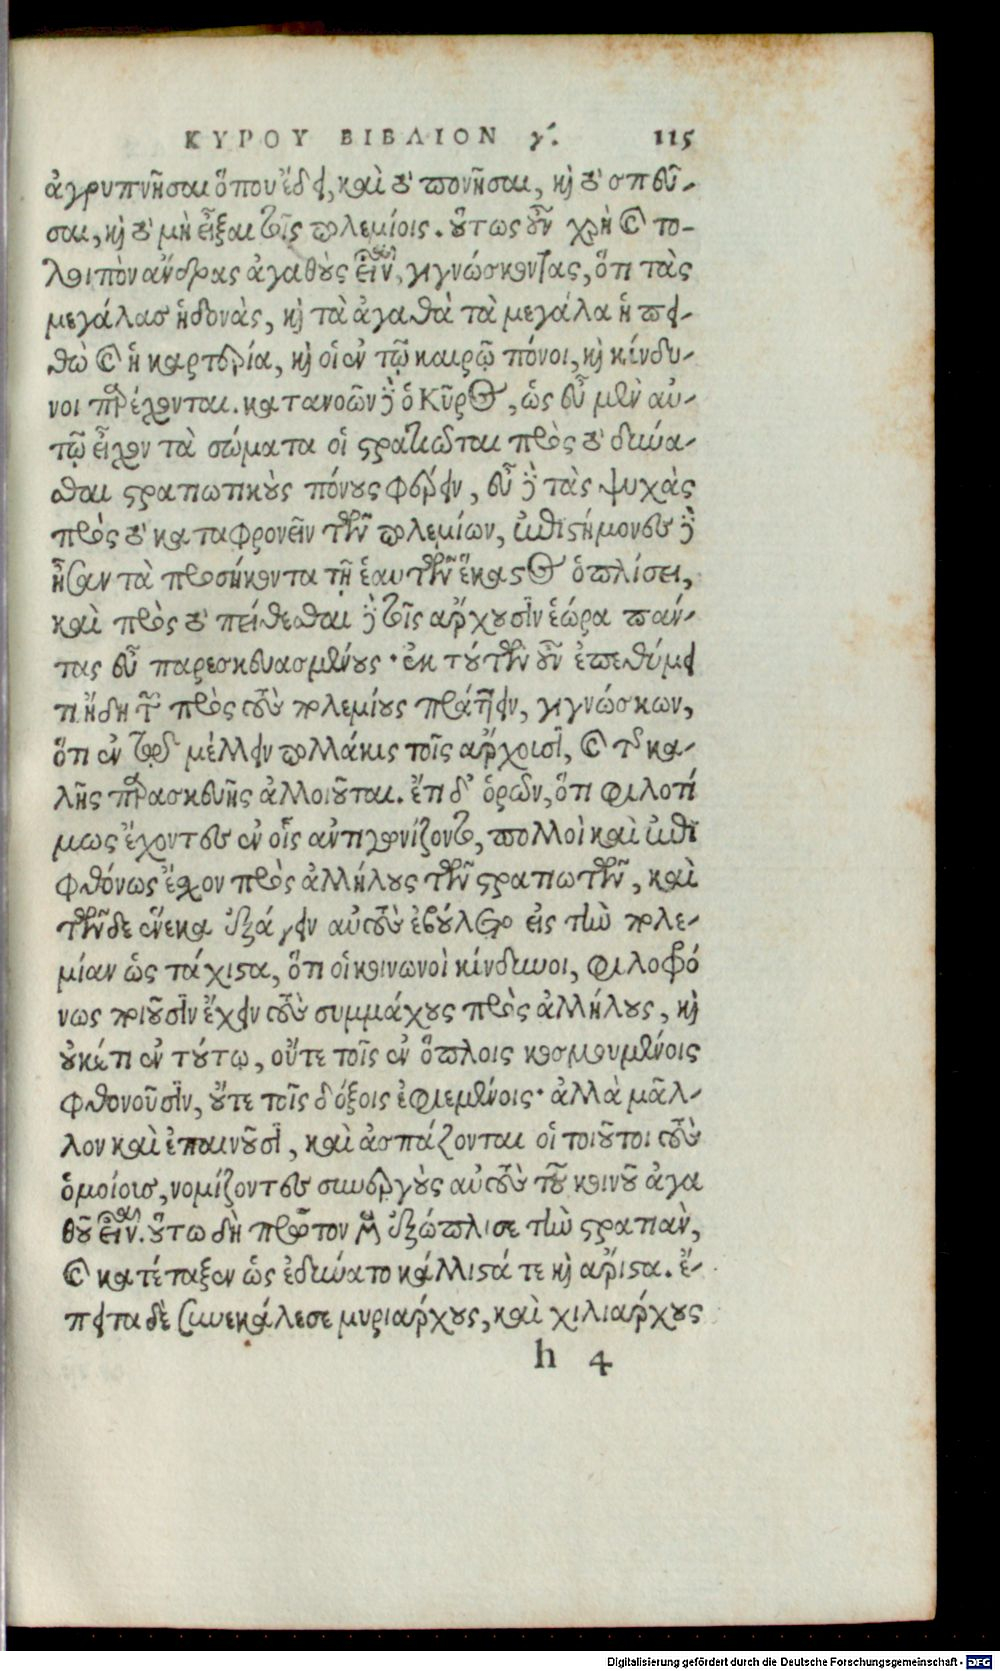 ΚΥΡΟΥ ΒΙΒΛΙΟΝ γ΄. 115
ἀγρυπνῆσαι ὅπου ἔδει, καὶ τὸ πονῆσαι, καὶ τὸ σπεῦ-
σαι, καὶ τὸ μὴ εἶξαι τοῖς πολεμίοις. οὕτως οὖν χρὴ καὶ το-
λοιπὸν ἄνδρας ἀγαθοὺς εἶναι, γιγνώσκοντας, ὅτι τὰς
μεγάλας ἡδονὰς, καὶ τὰ ἀγαθὰ τὰ μεγάλα ἡ πει-
θὼ καὶ ἡ καρτερία, καὶ οἱ ἐν τῷ καιρῷ πόνοι, καὶ κίνδυ-
νοι παρέχονται. κατανοῶν δὲ ὁ Κῦρος, ὡς εὖ μὲν αὐ-
τῷ εἶχον τὰ σώματα οἱ στρατιῶται πρὸς τὸ δύνα-
σθαι στρατιωτικοὺς πόνους φέρειν, εὖ δὲ τὰς ψυχὰς
πρὸς τὸ καταφρονεῖν τῶν πολεμίων, ἐπιστήμονες δὲ
ἦσαν τὰ προσήκοντα τῇ ἑαυτῶν ἕκαστος ὁπλίσει,
καὶ πρὸς τὸ πείθεσθαι δὲ τοῖς ἄρχουσιν ἑώρα πάν-
τας εὖ παρεσκευασμένους· ἐκ τούτων οὖν ἐπεθύμει
τι ἤδη τῶν πρὸς τοὺς πολεμίους πράττειν, γιγνώσκων,
ὅτι ἐν τῷ μέλλειν πολλάκις τοῖς ἄρχουσι, καὶ τῆς κα-
λῆς παρασκευῆς ἀλλοιοῦται. ἔτι δ' ὁρῶν, ὅτι φιλοτί
μως ἔχοντες ἐν οἷς ἀντηγωνίζοντο, πολλοὶ καὶ ἐπι
φθόνως εἶχον πρὸς ἀλλήλους τῶν στρατιωτῶν, καὶ
τῶνδε ἕνεκα ἐξάγειν αὐτοὺς ἐβούλετο εἰς τὴν πολε-
μίαν ὡς τάχιστα, ὅτι οἱ κοινωνοὶ κίνδυνοι, φιλοφρό
νως ποιοῦσιν ἔχειν τοὺς συμμάχους πρὸς ἀλλήλους, καὶ
οὐκέτι ἐν τούτῳ, οὔτε τοῖς ἐν ὅπλοις κοσμουμένοις
φθονοῦσιν, οὔτε τοῖς δόξοις ἐφιεμένοις· ἀλλὰ μᾶλ-
λον καὶ ἐπαινοῦσι, καὶ ἀσπάζονται οἱ τοιοῦτοι τοὺς
ὁμοίους, νομίζοντες συνεργοὺς αὐτοὺς τοῦ κοινοῦ ἀγα
θοῦ εἶναι. οὕτω δὴ πρῶτον μὲν ἐξώπλισε τὴν στρατιὰν,
καὶ κατέταξεν ὡς ἐδύνατο κάλλιστά τε καὶ ἄριστα. ἔ-
πειτα δὲ συνεκάλεσε μυριάρχους, καὶ χιλιάρχους
h 4
Digitalisierung gefördert durch die Deutsche Forschungsgemeinschaft - DFG